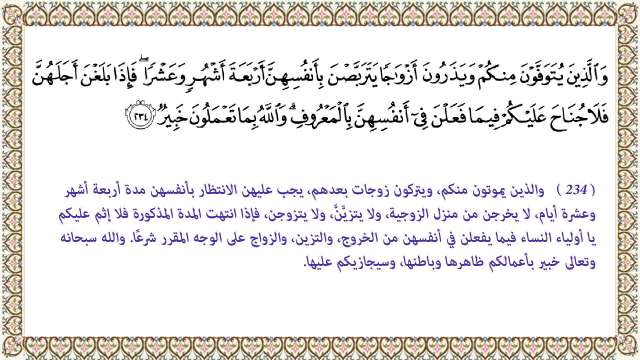 وَالَّذِينَ يُتَوَفَّوْنَ مِنكُمْ وَيَذَرُونَ أَزْوَاجًا يَتَرَبَّصْنَ بِأَنفُسِهِنَّ أَرْبَعَةَ أَشْهُرٍ وَعَشْرًا ۖ فَإِذَا بَلَغْنَ أَجَلَهُنَّ
فَلَا جُنَاحَ عَلَيْكُمْ فِيمَا فَعَلْنَ فِي أَنفُسِهِنَّ بِالْمَعْرُوفِ ۗ وَاللَّهُ بِمَا تَعْمَلُونَ خَبِيرٌ ٢٣٤
( 234 ) والذين يموتون منكم، ويتركون زوجات بعدهم، يجب عليهن الانتظار بأنفسهن مدة أربعة أشهر
وعشرة أيام، لا يخرجن من منزل الزوجية، ولا يتزيَّنَّ، ولا يتزوجن، فإذا انتهت المدة المذكورة فلا إثم عليكم
يا أولياء النساء فيما يفعلن في أنفسهن من الخروج، والتزين، والزواج على الوجه المقرر شرعًا. والله سبحانه
وتعالى خبير بأعمالكم ظاهرها وباطنها، وسيجازيكم عليها.